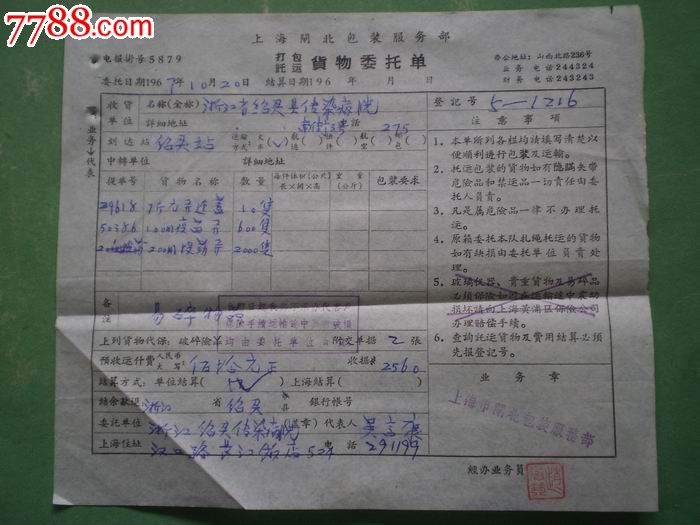 7788.com
上海閘北包装服务部
电报掛号5879
打包託运 貨物委托单
办公地址：山西北路256号
业务 电话244324
财务 电话243243
委托日期1967年10月20日 结算日期196 年 月 日
登记号 5—1216
业务代表
收貨单位
名称(全称) 浙江省绍兴县传染病院
詳細地址 电話 275
到达站 绍兴站
中轉单位 詳細地址
注意事項
1．本单所到各栏均請填写清楚以便顺利进行包装及运輸。
2．托运包装的貨物如有隐瞒夹带危险品和禁运品一切責任由委托人員負。
3．凡是属危险品一律不办理托运。
4．原箱委托本队扎绳托运的貨物如有缺損由委托单位自負責处理。
5．玻璃仪器，貴重貨物及易碎品必須保险如因在运輸途中震动損坏請向上海黄浦区保险公司办理賠偿手续。
6．查詢託运貨物及費用结算必須先报登記号。
提单号 貨物名称 数量 每件体积(公尺)長×闊×高 重量(公斤) 包装要求
29618 10隻
50386 100cc 600隻
200cc 2000隻
备注 易碎
上列貨物代保：破碎险 均由委托单位自 附交单据 2 张
预收运什費 人民币大写 佰拾元正 收据 2560
结算方式：单位结算( ✓ ) 上海结算( )
结余款退：浙江 省 绍兴 县 银行帐号
委托单位 浙江绍兴传染病院 (盖章) 代表人
上海住址 江口路長江饭店524 电話 291199
业务章
上海市閘北包装服務部
經办业务員